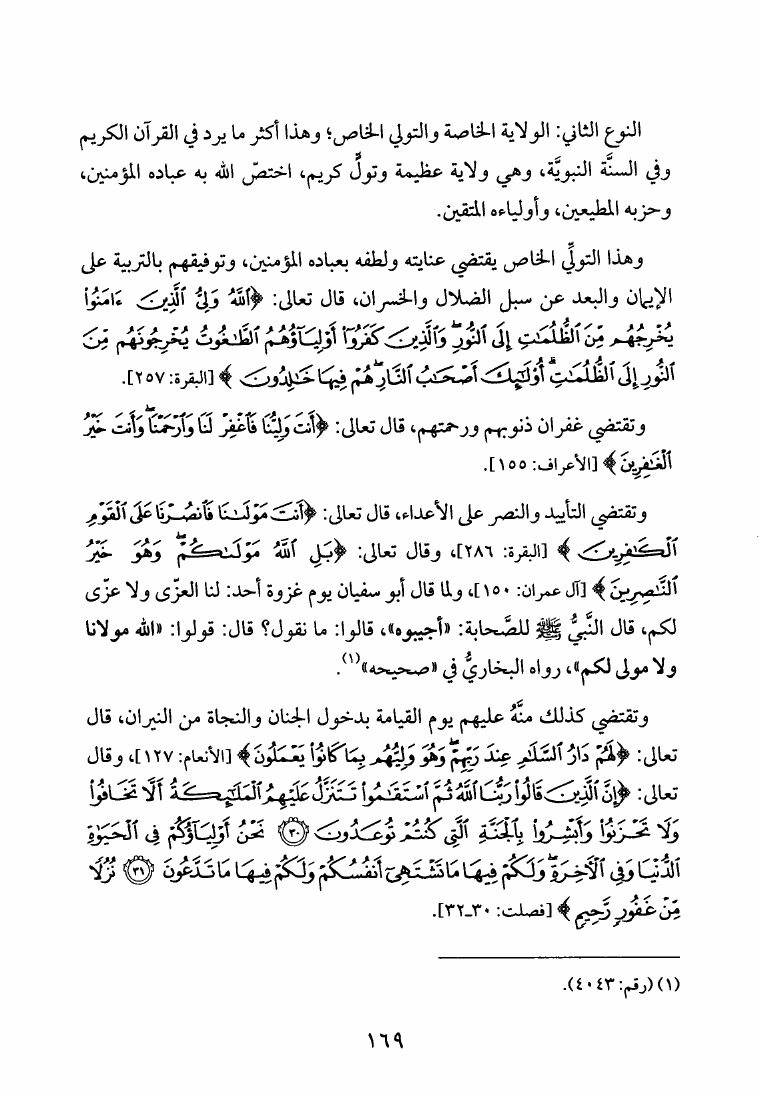 النوع الثاني: الولاية الخاصة والتولي الخاص؛ وهذا أكثر ما يرد في القرآن الكريم
وفي السنَّة النبويَّة، وهي ولاية عظيمة وتولٍّ كريم، اختصّ الله به عباده المؤمنين،
وحزبه المطيعين، وأولياءه المتقين.
وهذا التولِّي الخاص يقتضي عنايته ولطفه بعباده المؤمنين، وتوفيقهم بالتربية على
الإيمان والبعد عن سبل الضلال والخسران، قال تعالى: ﴿ٱللَّهُ وَلِيُّ ٱلَّذِينَ ءَامَنُوا۟
يُخْرِجُهُم مِّنَ ٱلظُّلُمَـٰتِ إِلَى ٱلنُّورِ ۖ وَٱلَّذِينَ كَفَرُوٓا۟ أَوْلِيَآؤُهُمُ ٱلطَّـٰغُوتُ يُخْرِجُونَهُم مِّنَ
ٱلنُّورِ إِلَى ٱلظُّلُمَـٰتِ ۗ أُو۟لَـٰٓئِكَ أَصْحَـٰبُ ٱلنَّارِ ۖ هُمْ فِيهَا خَـٰلِدُونَ﴾ [البقرة: ٢٥٧].
وتقتضي غفران ذنوبهم ورحمتهم، قال تعالى: ﴿أَنتَ وَلِيُّنَا فَٱغْفِرْ لَنَا وَٱرْحَمْنَا ۖ وَأَنتَ خَيْرُ
ٱلْغَـٰفِرِينَ﴾ [الأعراف: ١٥٥].
وتقتضي التأييد والنصر على الأعداء، قال تعالى: ﴿أَنتَ مَوْلَىٰنَا فَٱنصُرْنَا عَلَى ٱلْقَوْمِ
ٱلْكَـٰفِرِينَ﴾ [البقرة: ٢٨٦]، وقال تعالى: ﴿بَلِ ٱللَّهُ مَوْلَىٰكُمْ ۖ وَهُوَ خَيْرُ
ٱلنَّـٰصِرِينَ﴾ [آل عمران: ١٥٠]، ولما قال أبو سفيان يوم غزوة أحد: لنا العزّى ولا عزّى
لكم، قال النَّبيُّ ﷺ للصَّحابة: «أجيبوه»، قالوا: ما نقول؟ قال: قولوا: «الله مولانا
ولا مولى لكم»، رواه البخاريُّ في «صحيحه»(١).
وتقتضي كذلك منَّهُ عليهم يوم القيامة بدخول الجنان والنجاة من النيران، قال
تعالى: ﴿لَهُمْ دَارُ ٱلسَّلَـٰمِ عِندَ رَبِّهِمْ ۖ وَهُوَ وَلِيُّهُم بِمَا كَانُوا۟ يَعْمَلُونَ﴾ [الأنعام: ١٢٧]، وقال
تعالى: ﴿إِنَّ ٱلَّذِينَ قَالُوا۟ رَبُّنَا ٱللَّهُ ثُمَّ ٱسْتَقَـٰمُوا۟ تَتَنَزَّلُ عَلَيْهِمُ ٱلْمَلَـٰٓئِكَةُ أَلَّا تَخَافُوا۟
وَلَا تَحْزَنُوا۟ وَأَبْشِرُوا۟ بِٱلْجَنَّةِ ٱلَّتِى كُنتُمْ تُوعَدُونَ ۝٣٠ نَحْنُ أَوْلِيَآؤُكُمْ فِى ٱلْحَيَوٰةِ
ٱلدُّنْيَا وَفِى ٱلْـَٔاخِرَةِ ۖ وَلَكُمْ فِيهَا مَا تَشْتَهِىٓ أَنفُسُكُمْ وَلَكُمْ فِيهَا مَا تَدَّعُونَ ۝٣١ نُزُلًا
مِّنْ غَفُورٍ رَّحِيمٍ﴾ [فصلت: ٣٠-٣٢].
(١) (رقم: ٤٠٤٣).
١٦٩